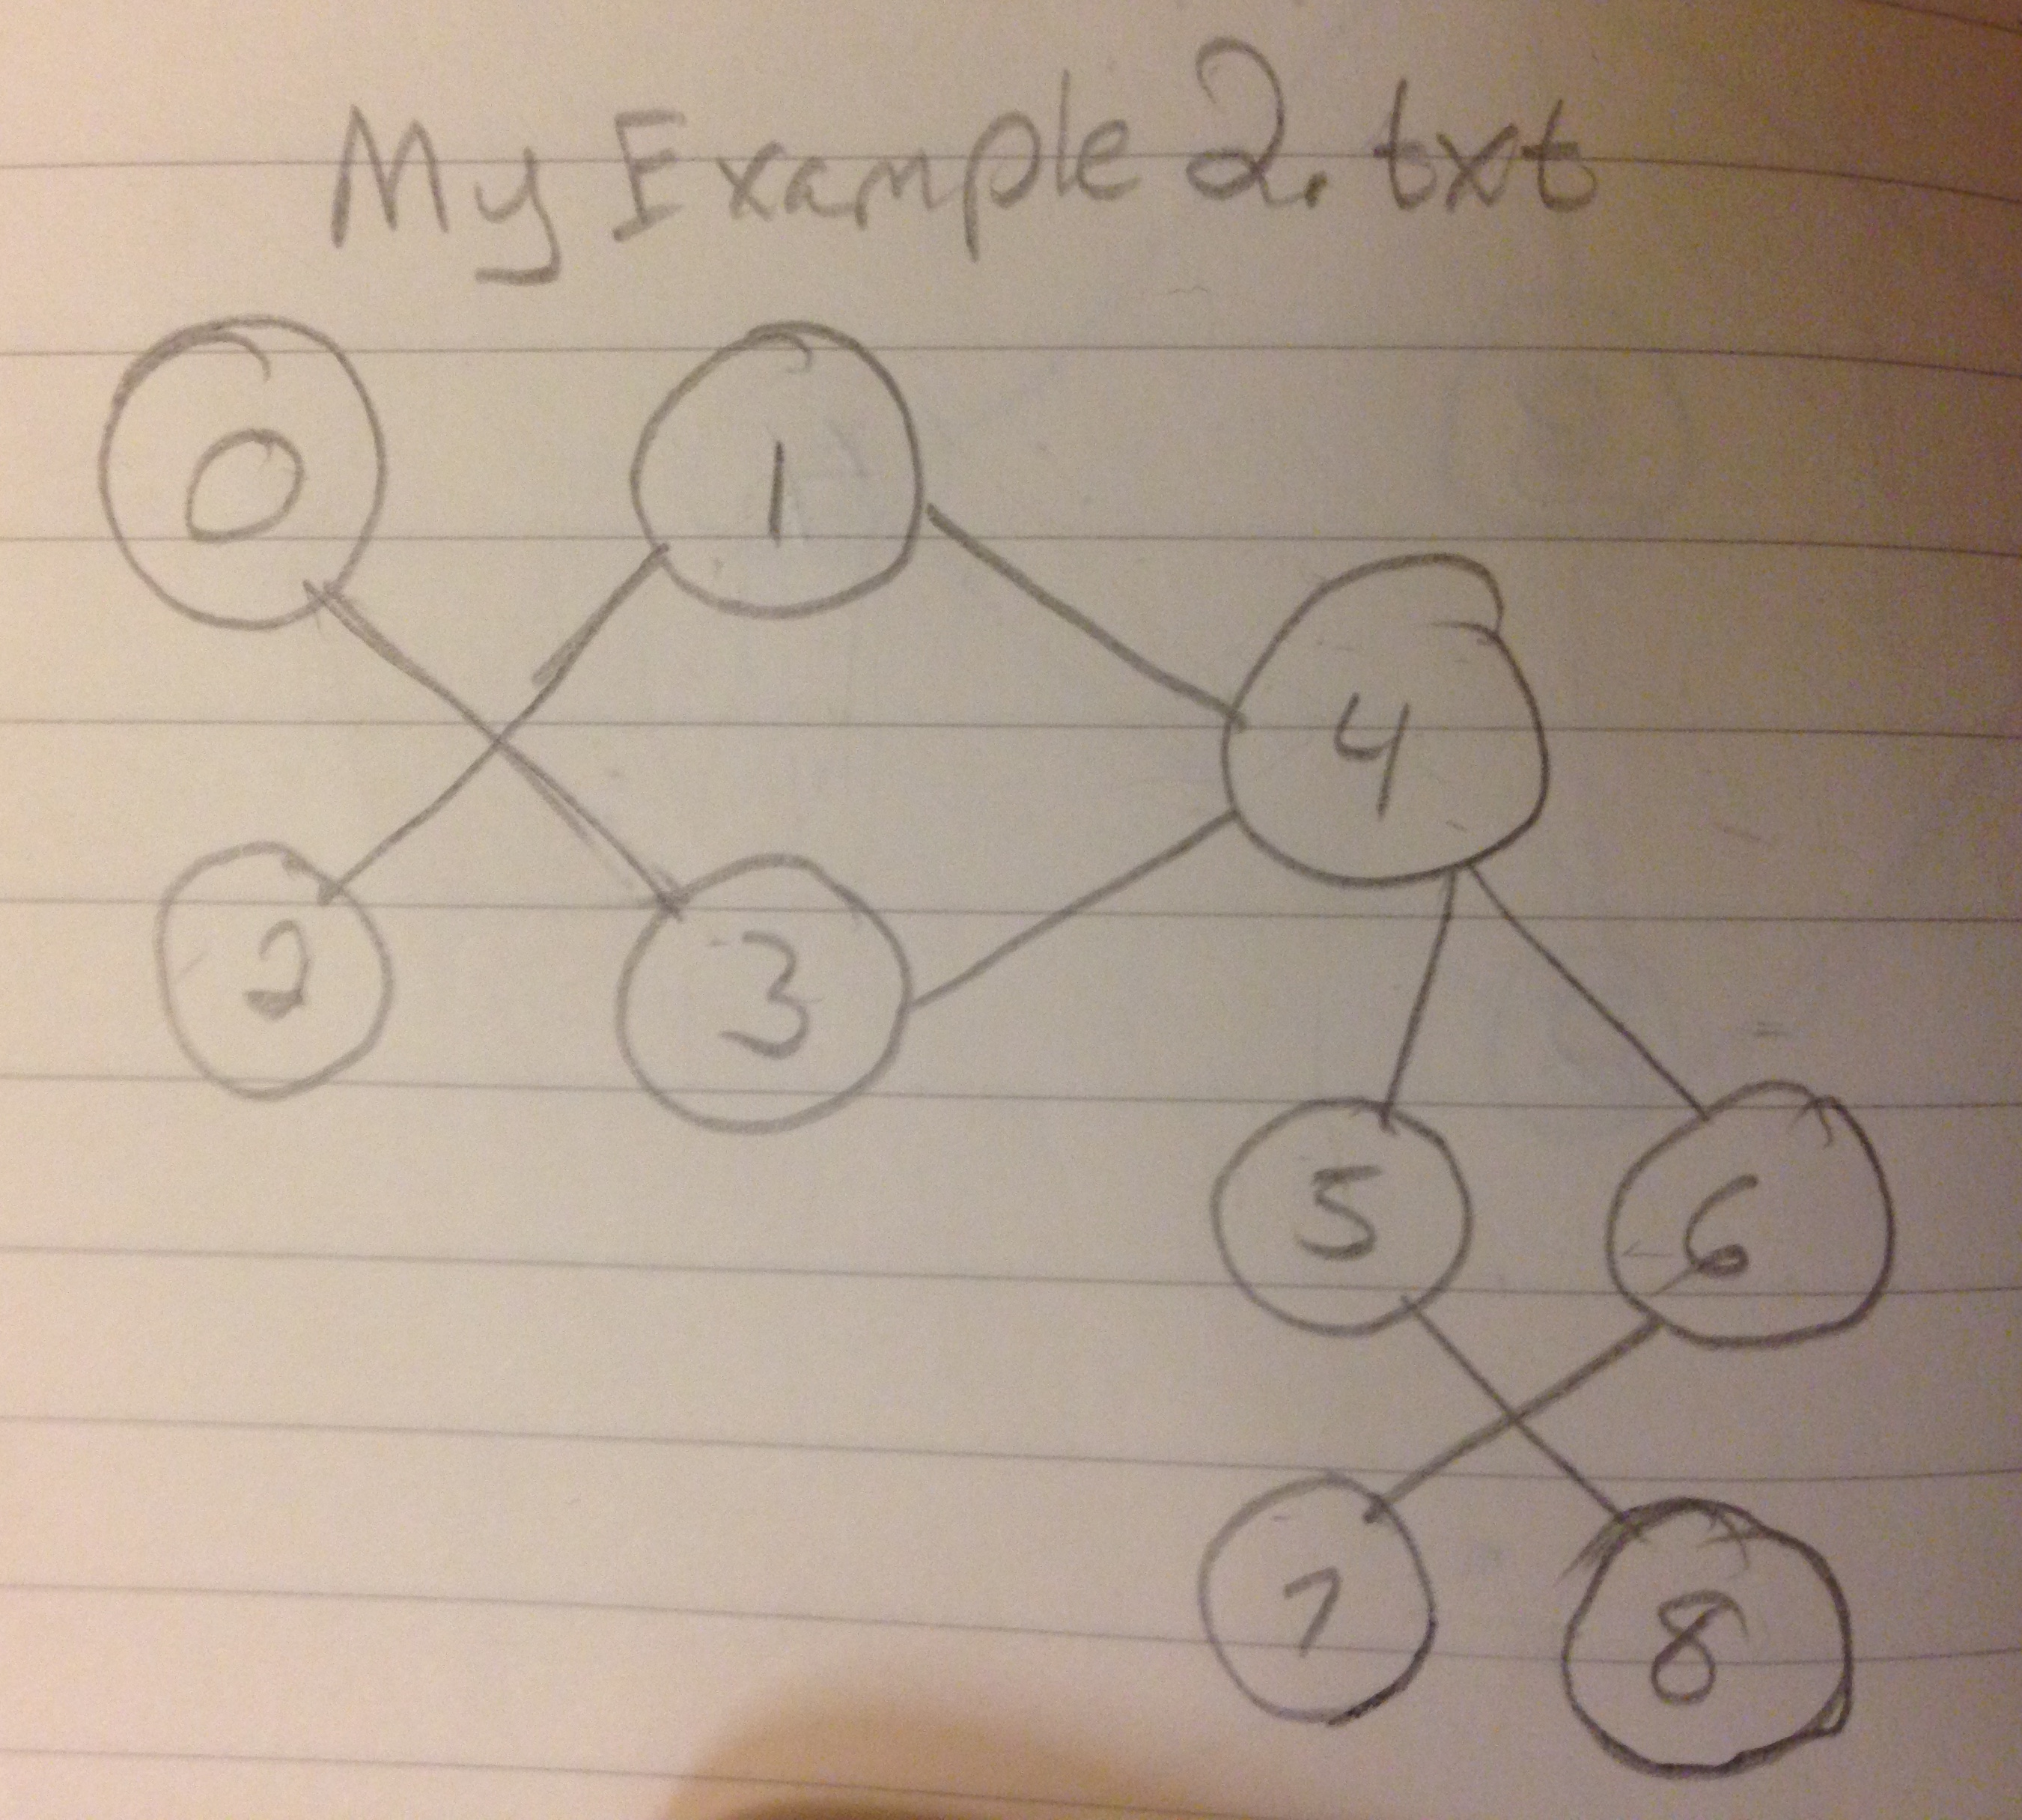 My Example 2.txt
0 1
4
2 3
5 6
7 8